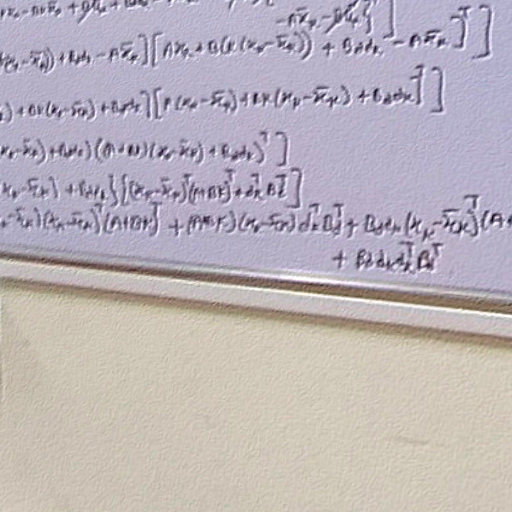 - A\bar{x}_k - B\bar{u}_k} ]
- \bar{x}_k)) + B_d d_k - A\bar{x}_k ] [ Ax_k + B(K(x_k - \bar{x}_k)) + B_d d_k - A\bar{x}_k ]^T ]
) + BK(x_k - \bar{x}_k) + B_d d_k ] [ A(x_k - \bar{x}_k) + BK(x_k - \bar{x}_k) + B_d d_k ]^T ]
x_k - \bar{x}_k) + B_d d_k) ((A + BK)(x_k - \bar{x}_k) + B_d d_k)^T ]
x_k - \bar{x}_k) + B_d d_k } { (x_k - \bar{x}_k)^T (A + BK)^T + d_k^T B_d^T ]
- \bar{x}_k)(x_k - \bar{x}_k)^T (A + BK)^T + (A + BK)(x_k - \bar{x}_k) d_k^T B_d^T + B_d d_k (x_k - \bar{x}_k)^T (A +
+ B_d d_k d_k^T B_d^T